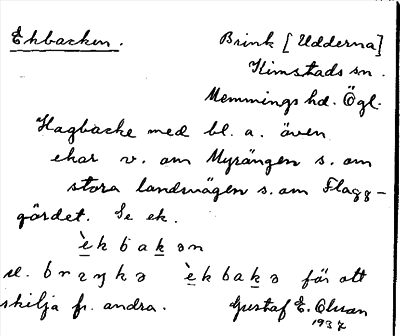 Ekbacken. Brink [Udderna]
Kimstads sn.
Memmings hd. Ögl.
Hagbacke med bl. a. även
ekar v. om Myrängen s. om
stora landsvägen s. om Flagg-
gärdet. Se ek.
èkbakən
el. brzykə èkbakə för att
skilja fr. andra. Gustaf E. Olsson
1937